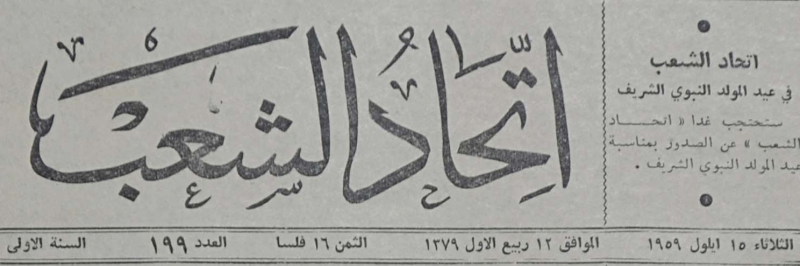 اتحاد الشعب
اتحاد الشعب
في عيد المولد النبوي الشريف
ستحتجب غدا « اتحـــاد
الشعب » عن الصدور بمناسبة
عيد المولد النبوي الشريف .
الثلاثاء ١٥ ايلول ١٩٥٩ الموافق ١٢ ربيع الاول ١٣٧٩ الثمن ١٦ فلسا العدد ١٩٩ السنة الاولى